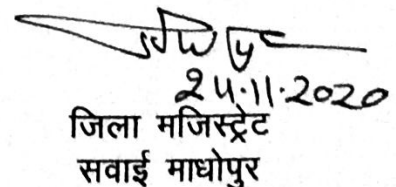 24.11.2020
जिला मजिस्ट्रेट
सवाई माधोपुर